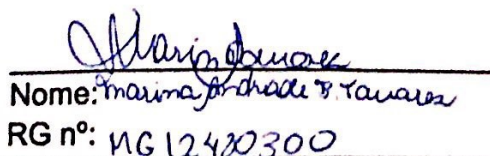 Marina Tavares
Nome: Marina Andrade B. Tavares
RG nº: MG 12420300